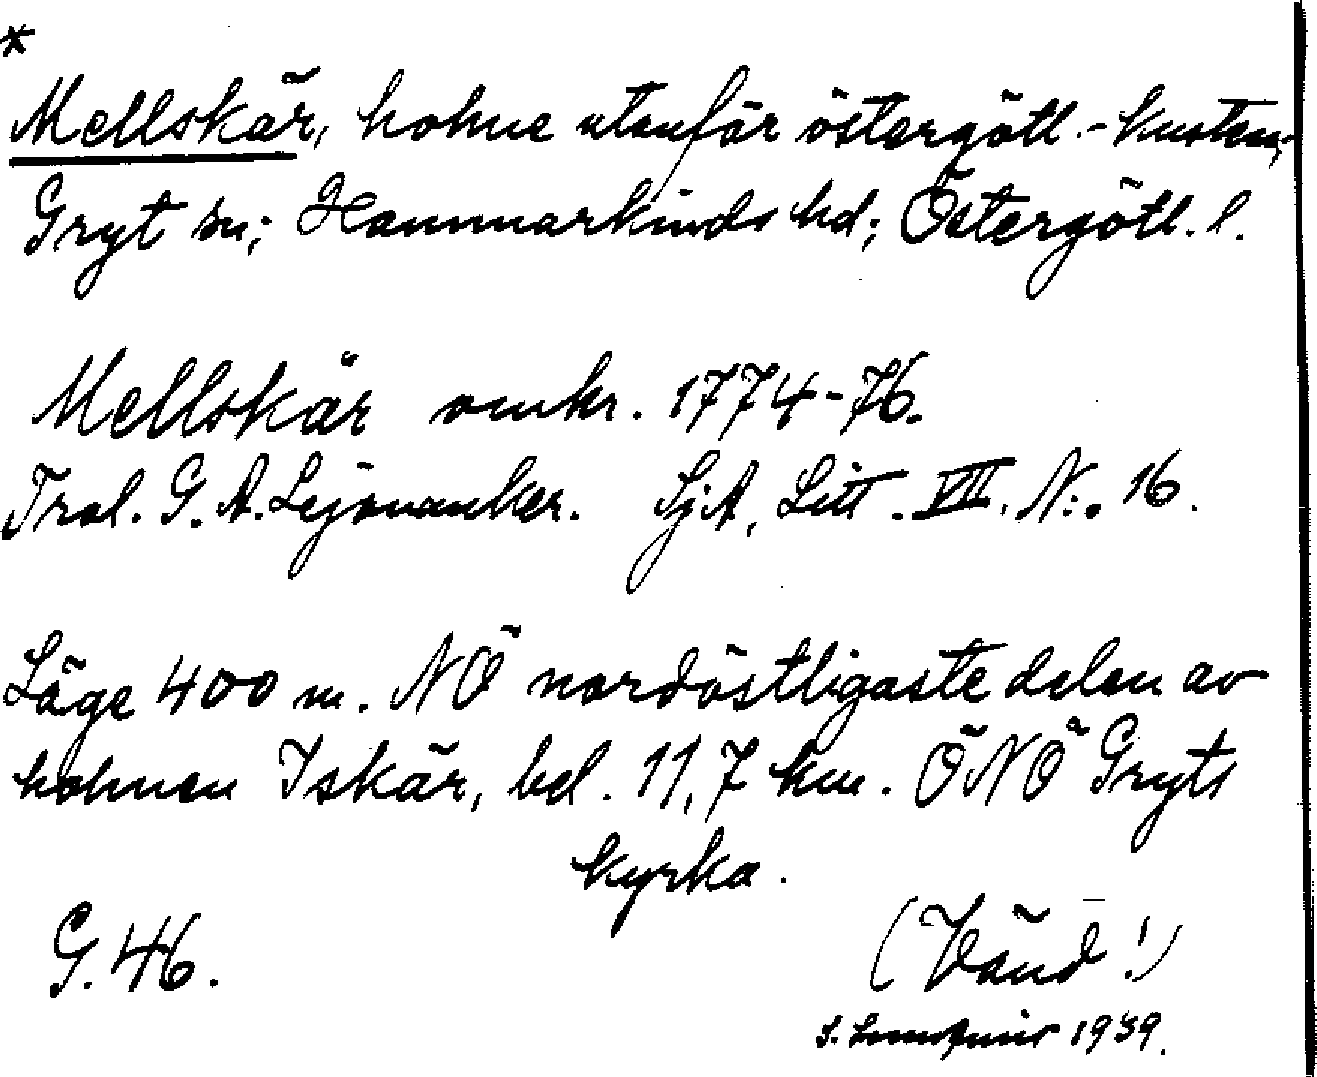 *
Mellskär, holme utanför östergötl.-kusten,
Gryt sn; Hammarkinds hd; Östergötl. l.
Mellskär omkr. 1774-76.
Trol. G. A. Lejonanker. SjA, Litt. VII. N:. 16.
Läge 400 m. NÖ nordöstligaste delen av
holmen Iskär, bel. 11,7 km. ÖNÖ Gryts
kyrka.
G. 46.
(Vänd!)
S. 1939.